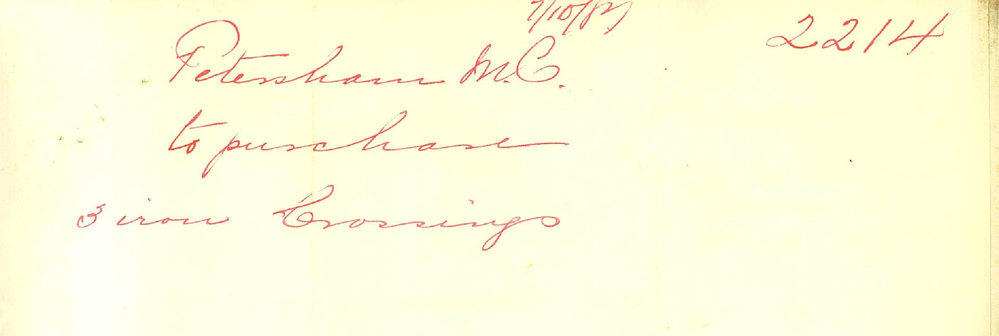 7/10/87
2214
Petersham M.C.
to purchase
3 iron Crossings